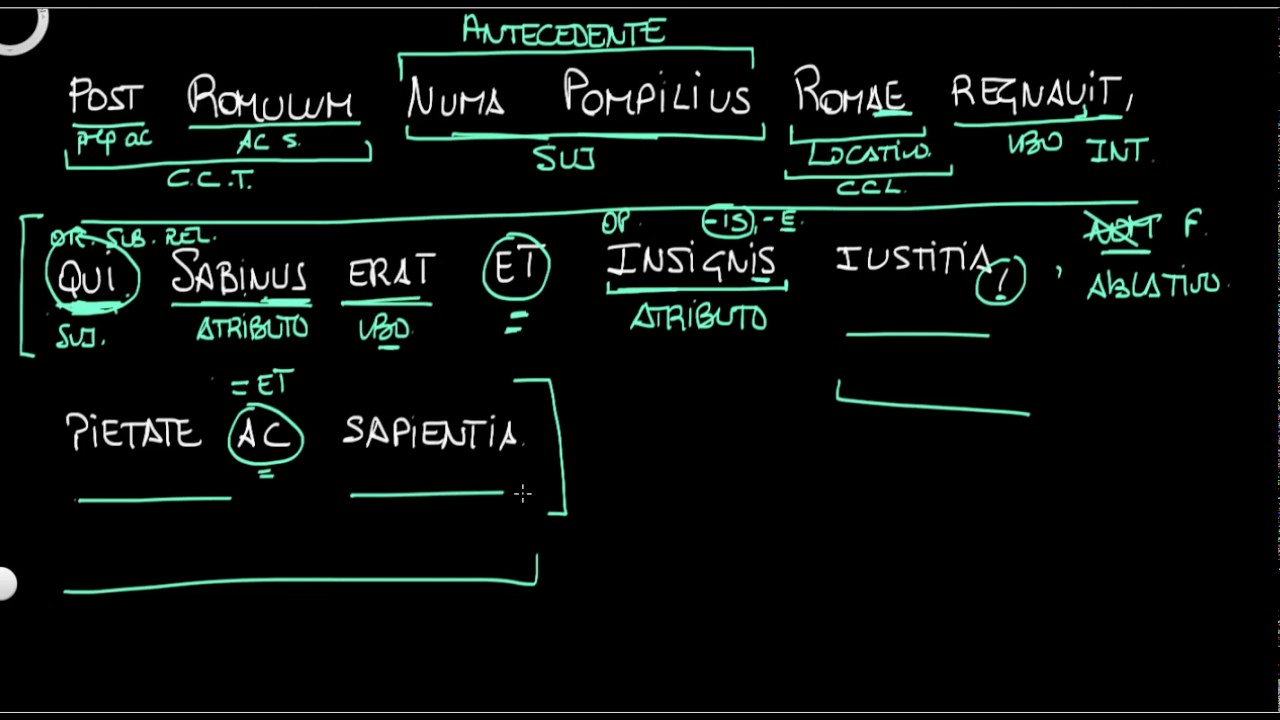 ANTECEDENTE
POST ROMULUM NUMA POMPILIUS ROMAE REGNAVIT,
prep ac AC S. SUJ LOCATIVO. VBO INT.
C.C.T. CCL.
OR. SUB. REL. OP. -IS, -E. F.
QUI SABINUS ERAT ET INSIGNIS IUSTITIA, , ABLATIVO.
SUJ. ATRIBUTO VBO = ATRIBUTO
= ET
PIETATE AC SAPIENTIA.
=